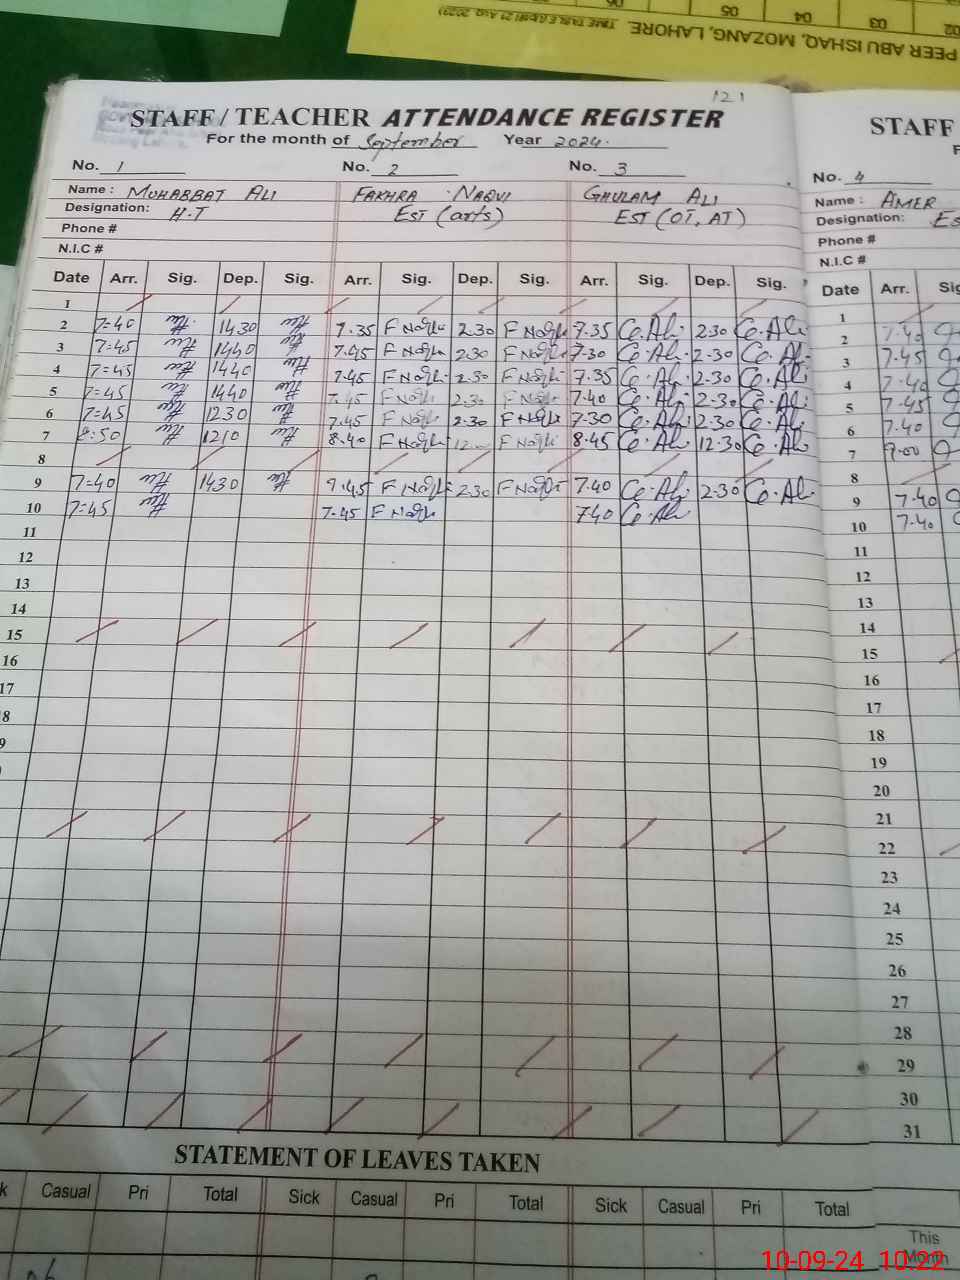 02 03 04 05 06
PEER ABU ISHAQ, MOZANG, LAHORE. TIME TABLE
121
STAFF / TEACHER ATTENDANCE REGISTER
For the month of September Year 2024.
No. 1 No. 2 No. 3
Name : MUHABBAT ALI FAKHRA NAQVI GHULAM ALI
Designation: H.T EST (arts) EST (OT, AT)
Phone #
N.I.C #
Date Arr. Sig. Dep. Sig. Arr. Sig. Dep. Sig. Arr. Sig. Dep. Sig.
1
2 7=40 1430 7.35 F Naqvi 2.30 F Naqvi 7.35 G.Ali 2.30 G.Ali
3 7=45 1440 7.45 F Naqvi 2.30 F Naqvi 7.30 G.Ali 2.30 G.Ali
4 7=45 1440 7.45 F Naqvi 2.30 F Naqvi 7.35 G.Ali 2.30 G.Ali
5 7=45 1440 7.45 F Naqvi 2.30 F Naqvi 7.40 G.Ali 2.30 G.Ali
6 7=45 1230 7.45 F Naqvi 2.30 F Naqvi 7.30 G.Ali 2.30 G.Ali
7 8:50 1210 8.40 F Naqvi F Naqvi 8.45 G.Ali 12.30 G.Ali
8
9 7=40 1430 7.45 F Naqvi 2.30 F Naqvi 7.40 G.Ali 2.30 G.Ali
10 7=45 7.45 F Naqvi 7.40 G.Ali
11
12
13
14
15
16
17
8
9
STATEMENT OF LEAVES TAKEN
Casual Pri Total Sick Casual Pri Total Sick Casual Pri Total
STAFF
No. 4
Name : AMER
Designation: Es
Phone #
N.I.C #
Date Arr. Sig
1
2 7.40
3 7.45
4 7.40
5 7.45
6 7.40
7 9.00
8
9 7.40
10 7.40
11
12
13
14
15
16
17
18
19
20
21
22
23
24
25
26
27
28
29
30
31
This
Month
10-09-24 10:22